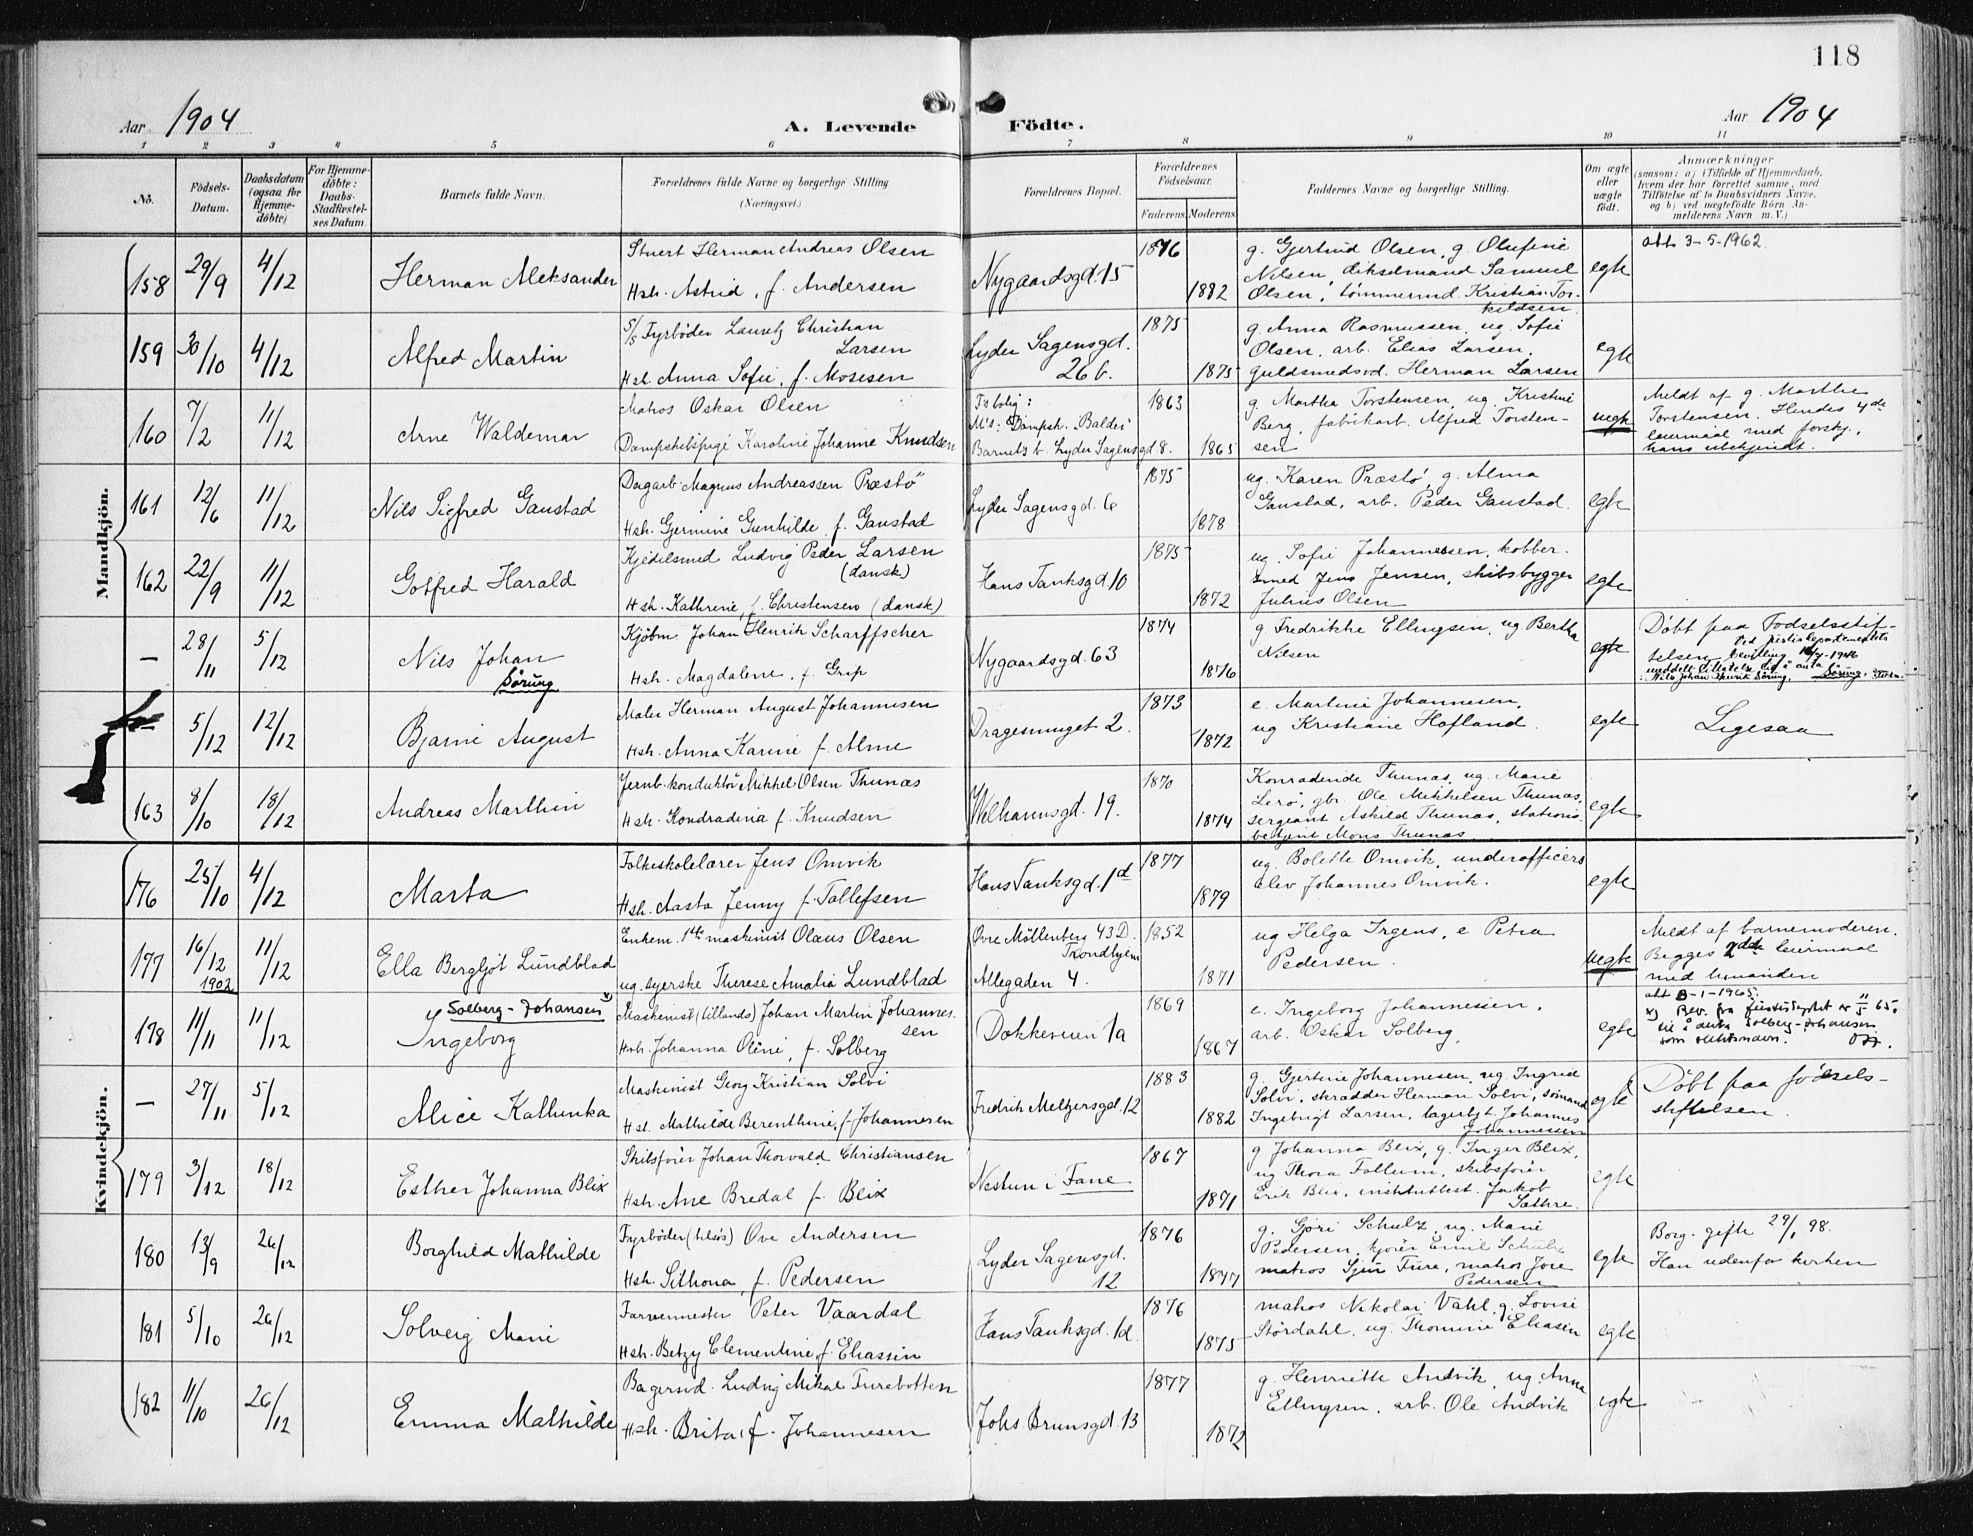 118
Aar 1904
A. Levende Födte.
Aar 1904
1 2 3 4 5 6 7 8 9 10 11
No.
Födsels-Datum.
Daabsdatum (ogsaa for Hjemme-döbte)
For Hjemme-döbte: Daabs-Stadfæstel-ses Datum.
Barnets fulde Navn.
Forældrenes fulde Navne og borgerlige Stilling
(Næringsvei.)
Forældrenes Bopæl.
Forældrenes Födselsaar.
Faderens Moderens
Faddernes Navne og borgerlige Stilling.
Om ægte eller uægte født.
Anmærkninger
(saasom: a) i Tilfælde af Hjemmedaab, hvem der har forrettet samme, med Tilföielse af to Daabsvidners Navne, og b) ved uægtefödte Börn An-melderens Navn m. V.)
Mandkjön.
158 29/9 4/12 Herman Aleksander
Stuert Herman Andreas Olsen
Hsh. Astrid, f. Andersen
Nygaardsgd. 15
1876 1882
g. Gjertrud Olsen, g. Olufine
Nilsen, dikselmand Samuel
Olsen, tømmermd. Kristian Tor-
kildsen
egte
att. 3-5-1962.
159 30/10 4/12 Alfred Martin
S/S Fyrbøder Lauritz Christian
Larsen
Hsh. Anna Sofie, f. Mosesen
Lyder Sagensgd.
26 b.
1875 1875
g. Anna Rasmussen, ug. Sofie
Olsen, arb. Elias Larsen,
guldsmedsvd. Herman Larsen
egte
160 7/2 11/12 Arne Waldemar
Matros Oskar Olsen
Dampskibspige Karoline Johanne Knudsen
Fs bolig:
M's: Dampsk. "Balder"
Barnets b. Lyder Sagensgd 8.
1863 1865
g. Martha Torstensen, ug. Kristine
Berg, fabrikarb. Alfred Torsten-
sen
uegte
Meldt af g. Marthe
Torstensen. Hendes 4de
leiermaal med forskj.,
hans ubekjendt.
161 12/6 11/12 Nils Sigfred Gaustad
Dagarb. Magnus Andreassen Præstö
Hsh. Germine Gunhilde f. Gaustad
Lyder Sagensgd. 6
1875 1878
ug. Karen Præstö, g. Alma
Gaustad, arb. Peder Gaustad.
egte
162 22/9 11/12 Gotfred Harald
Kjedelsmed Ludvig Peder Larsen
(dansk)
Hsh. Kathrine, f. Christensen (dansk)
Hans Tanksgd. 10
1875 1872
ug. Sofie Johannessen, kobber-
smed Jens Jensen, skibsbygger
Julius Olsen
egte
— 28/11 5/12 Nils Johan
Söring
Kjøbm. Johan Henrik Scharffscher
Hsh. Magdalene, f. Grip
Nygaardsgd. 63
1874 1876
g. Fredrikke Ellingsen, ug Bertha
Nilsen
egte
Döbt paa Fødselsstif-
telsen
5/12 12/12 Bjarne August
Maler Herman August Johannesen
Hsh. Anna Karine f. Alme
Dragesmuget 2.
1873 1872
e. Martine Johannesen,
ug Kristiane Hofland.
egte
Ligesaa
163 8/10 18/12 Andreas Marthin
Jernb.konduktör Mikkel Olsen Thunæs
Hsh. Kondradina f. Knudsen
Welhavensgd. 19.
1870 1874
Konradende Thunas, ug. Marie
Lerö, gbr. Ole Mikkelsen Thunas,
sergeant Askild Thunas, stations-
betjent Mons Thunas
egte
Kvindekjön.
176 25/10 4/12 Marta
Folkeskolelærer Jens Omvik
Hsh. Aasta Jenny f. Tollefsen
Hans Tanksgd. 1d
1877 1879
ug. Bolette Omvik, underofficers
elev Johannes Omvik.
egte
177 16/12 1902 11/12 Ella Bergljot Lundblad
Enkem. 1ste maskinist Olaus Olsen
ug. syerske Therese Amalia Lundblad
Øvre Möllenberg 43 D.
Trondhjem
Allegaden 4.
1852 1871
ug Helga Irgens, e Petra
Pedersen.
uegte
Meldt af barnemoderen.
Begges 2det leiermaal
med hinanden
178 11/11 11/12 Solberg-Johansen x)
Ingeborg
Maskinist (tillands) Johan Martin Johannes-
sen
Hsh. Johanna Oline, f. Solberg
Dokkeveien 1a
1869 1867
e. Ingeborg Johannessen,
arb. Oskar Solberg.
egte
att 8-1-1965.
til å anta Solberg-Johansen
som slektsnavn.
— 27/11 5/12 Alice Kathinka
Maskinist Georg Kristian Solvi
Hsh. Mathilde Berenthine, f. Johannesen
Fredrik Meltzersgd. 12
1883 1882
g. Gjertine Johannesen, ug. Ingrid
Solvi, skrædder Herman Solvi, sömand
Ingebrigt Larsen, lagerbtj. Johannes
Johannessen
egte
Döbt paa födsels-
stiftelsen.
179 3/12 18/12 Esther Johanna Blix
Skibsfører Johan Thorvald Christiansen
Hsh. Ane Bredal f. Blix
Nestun i Fane
1867 1871
g. Johanna Blix, g. Inger Blix,
ug Thora Follum, skibsfører
Erik Blix, institutbest. Jakob
Sæthre.
egte
180 13/9 26/12 Borghild Mathilde
Fyrbøder (tilsös) Ove Andersen
Hsh. Sithona, f. Pedersen
Lyder Sagensgd.
12
1876 1877
g. Göri Schulz, ug. Marie
Pedersen, kjörer Emil Schulz
matros Sjur Ture, matros Jore
Pedersen
egte
Borg. gifte 29/1 98.
Han udenfor kirken
181 5/10 26/12 Solveig Marie
Farvermester Peter Vaardal
Hsh. Betzy Clementine f. Eliassen
Hans Tanksgd. 1d.
1876 1875
matros Nikolai Vahl, g. Lovise
Stördahl, ug. Thomine Eliasen
egte
182 11/10 26/12 Emma Mathilde
Bagersvd. Ludvig Mikal Furebotten
Hsh. Brita, f. Johannesen
Johs Brunsgd. 13
1877 1872
g. Henriette Andvik, ug Anna
Ellingsen, arb. Ole Andvik
egte